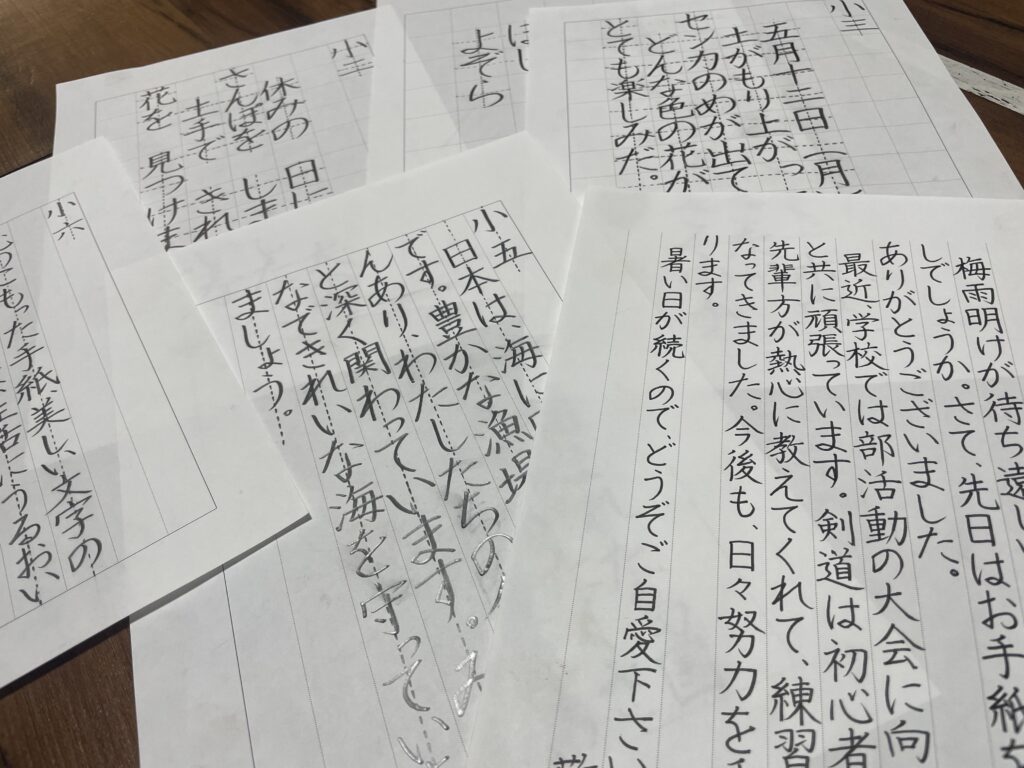 小二
休みの 日に
さんぽを しま
土手で きれ
花を 見つけま
よぞら
小三
五月十三日
土がもり上がっ
センカのめが出て
どんな色の花が
とても楽しみだ。
小六
もった手紙美しい文字の
生活にうるおい
小五
日本は、海に
です。豊かな漁場
んあり、わたしたちの
と深く関わっています。
なできれいな海を守ってい
ましょう。
梅雨明けが待ち遠しい
しでしょうか。さて、先日はお手紙を
ありがとうございました。
最近、学校では部活動の大会に向
と共に頑張っています。剣道は初心者
先輩方が熱心に教えてくれて、練習
なってきました。今後も、日々努力を
ります。
暑い日が続くのでどうぞご自愛下さい